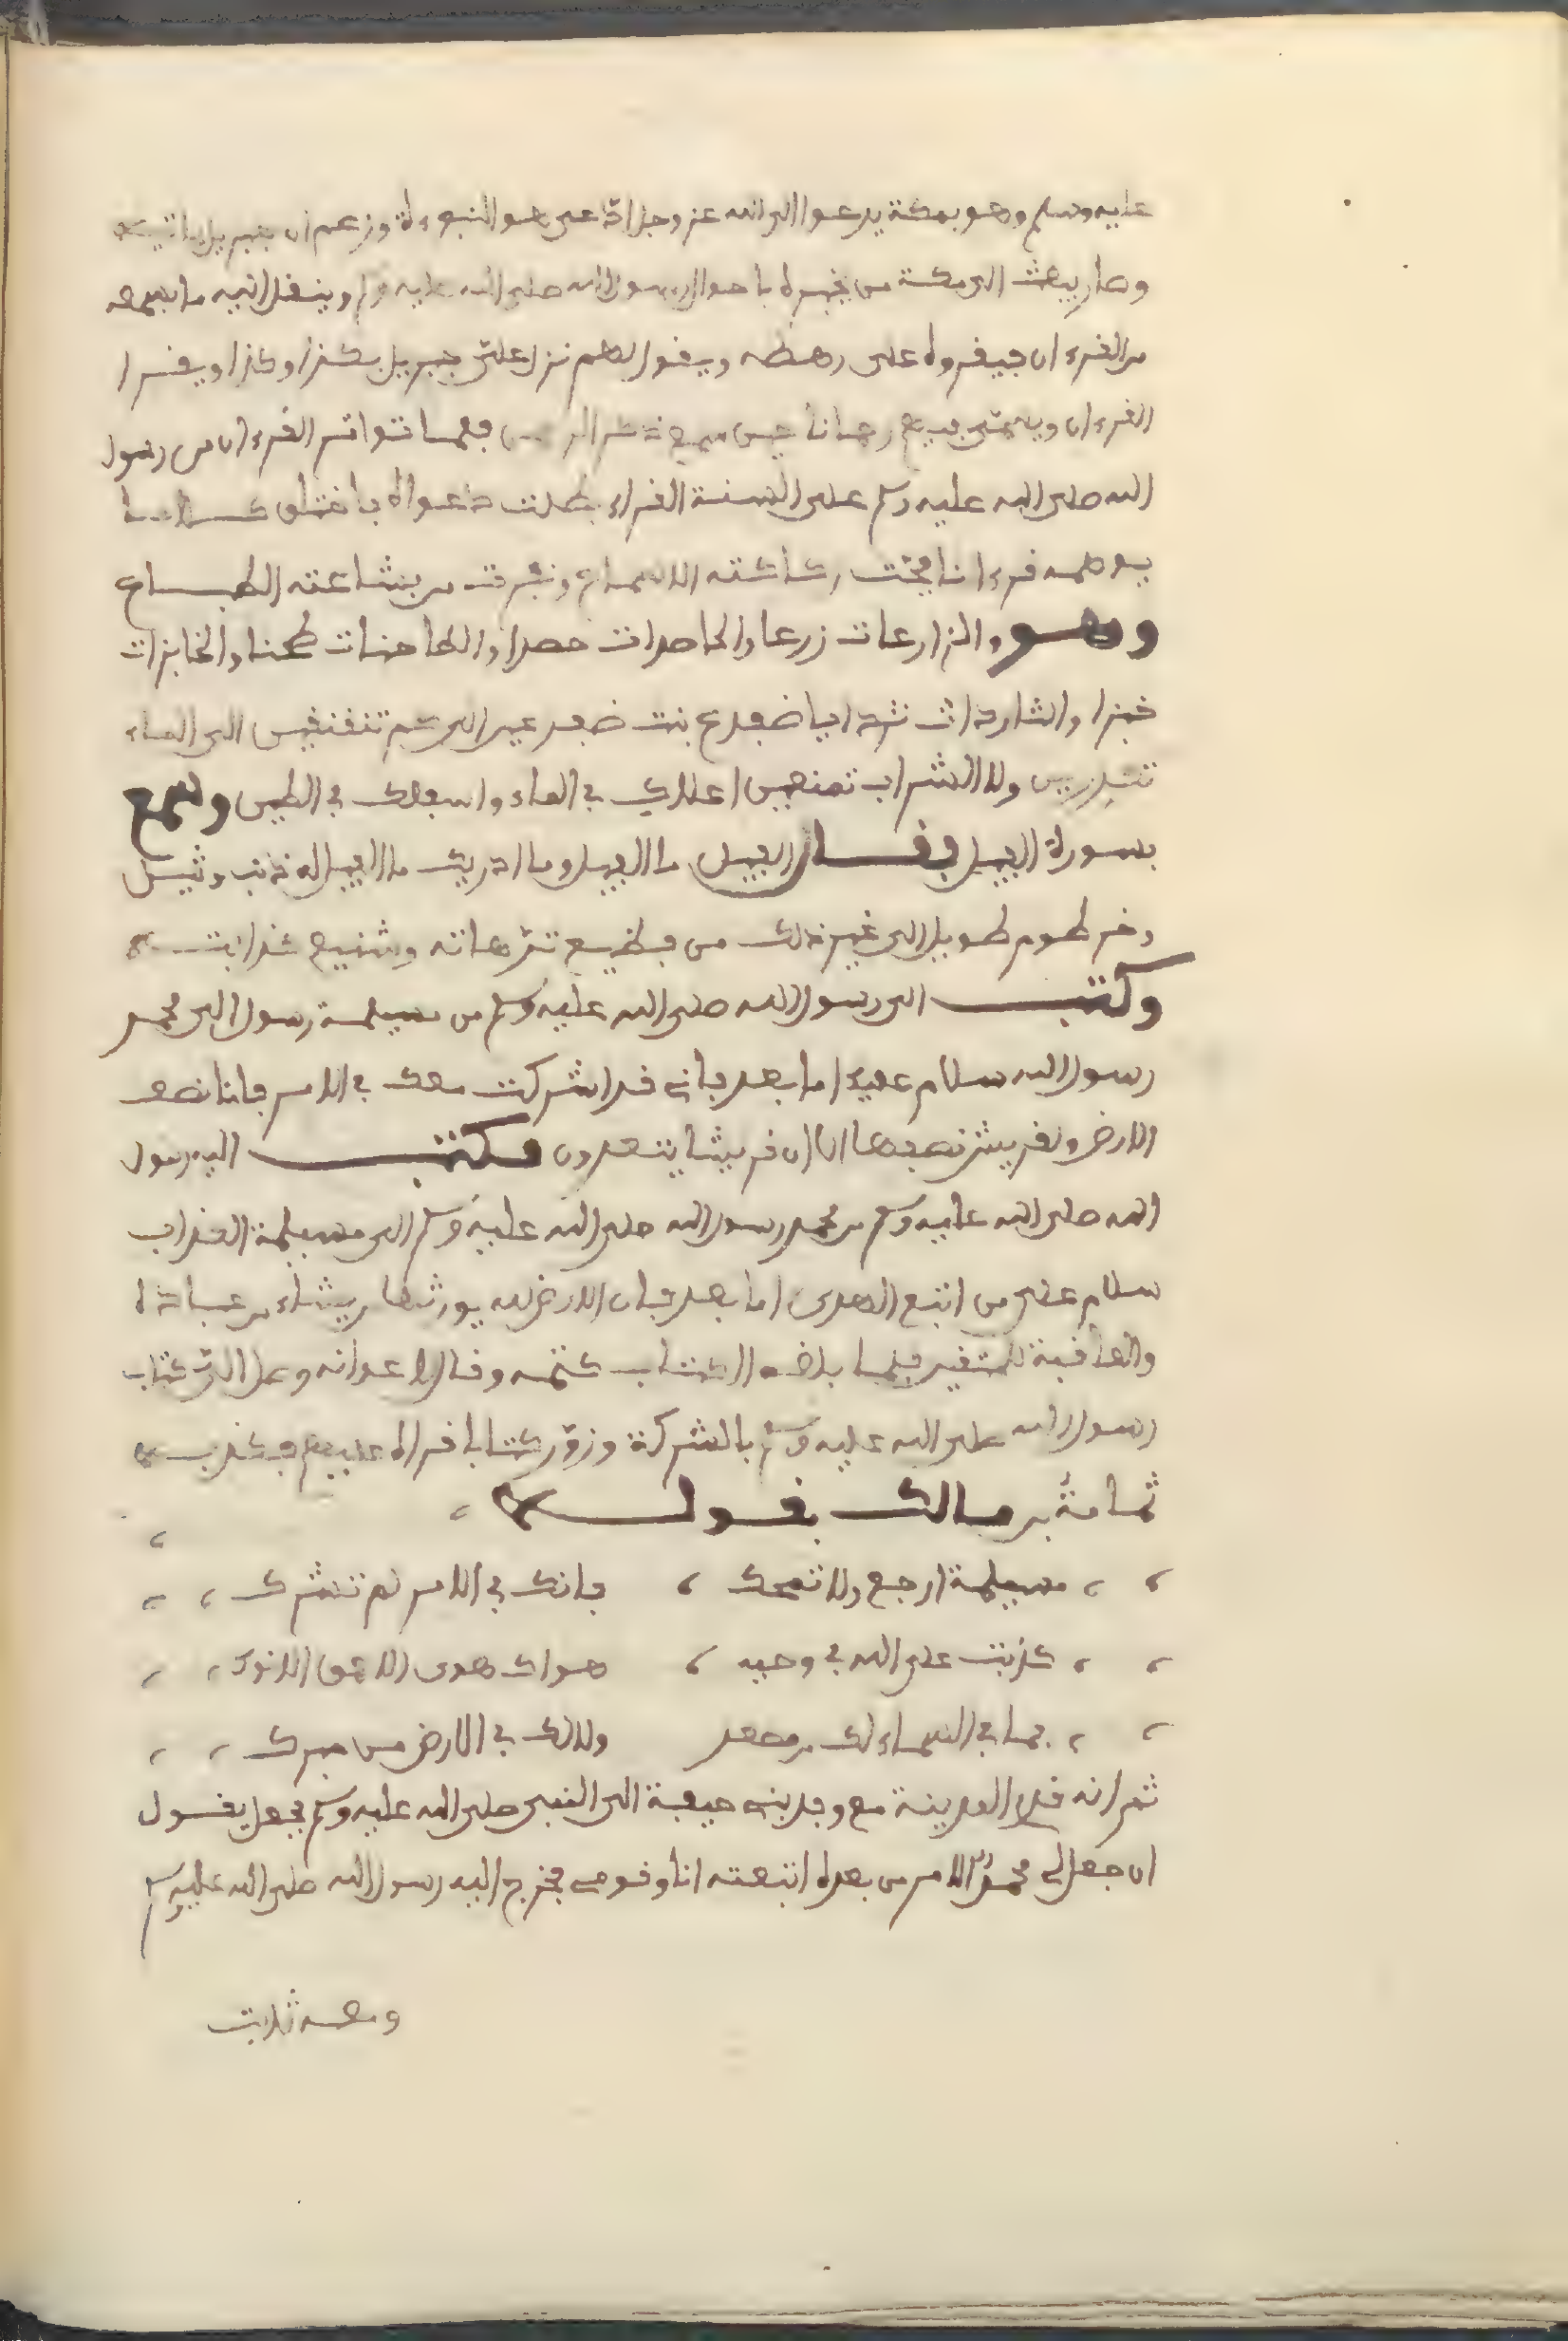 عليه وسلم وهو بمكة يدعوا الى الله عز وجل ادّعى هو النبوءة وزعم ان جبريل ياتيه
وصار يبعث الى مكة من يخبره باحوال رسول الله صلى الله عليه وسلم وينقل اليه ما يسمعه
من القرءان فيقروه على رهطه ويقول لهم نزل علىّ جبريل بكذا وكذا ويقرا
القرءان ويسمّى فيهم رحمانا فلما تواتر القرءان من رسول
الله صلى الله عليه وسلم على السنة القراء بطلت دعواه فاختلق كلاما
يوهمه قرءانا فمجّت ركاكته الاسماع ونفرت من بشاعته الطباع
وهو والزارعات زرعا والحاصدات حصدا والطاحنات طحنا والخابزات
خبزا والثاردات ثردا يا ضفدع بنت ضفدعين الى كم تنقنقين الى الماء
تكدرين ولا الشراب تمنعين اعلاك في الماء واسفلك في الطين وسمع
بسورة الفيل فقال الفيل ما الفيل وما ادريك ما الفيل له ذنب وثيل
وخرطوم طويل الى غير ذلك من فظيع ترّهاته وشنيع
وكتب الى رسول الله صلى الله عليه وسلم من مسيلمة رسول الى محمد
رسول الله سلام عليك اما بعد فانى قد اشركت معك في الامر فلنا نصف
الارض ولقريش نصفها الا ان قريشا يتعدون فكتب اليه رسول
الله صلى الله عليه وسلم من محمد رسول الله صلى الله عليه وسلم الى مسيلمة الكذاب
سلام على من اتبع الهدى اما بعد فان الارض لله يورثها من يشاء من عباده
والعاقبة للمتقين فلما بلغه الكتاب كتمه وقال لاعوانه وصل الىّ كتاب
رسول الله صلى الله عليه وسلم بالشركة وزوّر كتابا قراه عليهم فكذبه
ثمامةُ بن مالك بقوله
مسيلمة ارجع ولا تمحك ، فانك في الامر لم تشرك
كذبت على الله في وحيه ، هواك هوى الاحمق الانوك
فما في السماء لك من مصعد ولا لك في الارض من مبرك
ثم انه قدم المدينة مع وفد بنى حنيفة الى النبى صلى الله عليه وسلم فجعل يقول
ان جعل لى محمدٌ الامر من بعده اتبعته انا وقومى فخرج اليه رسول الله صلى الله عليه وسلم
ومعه ثابت